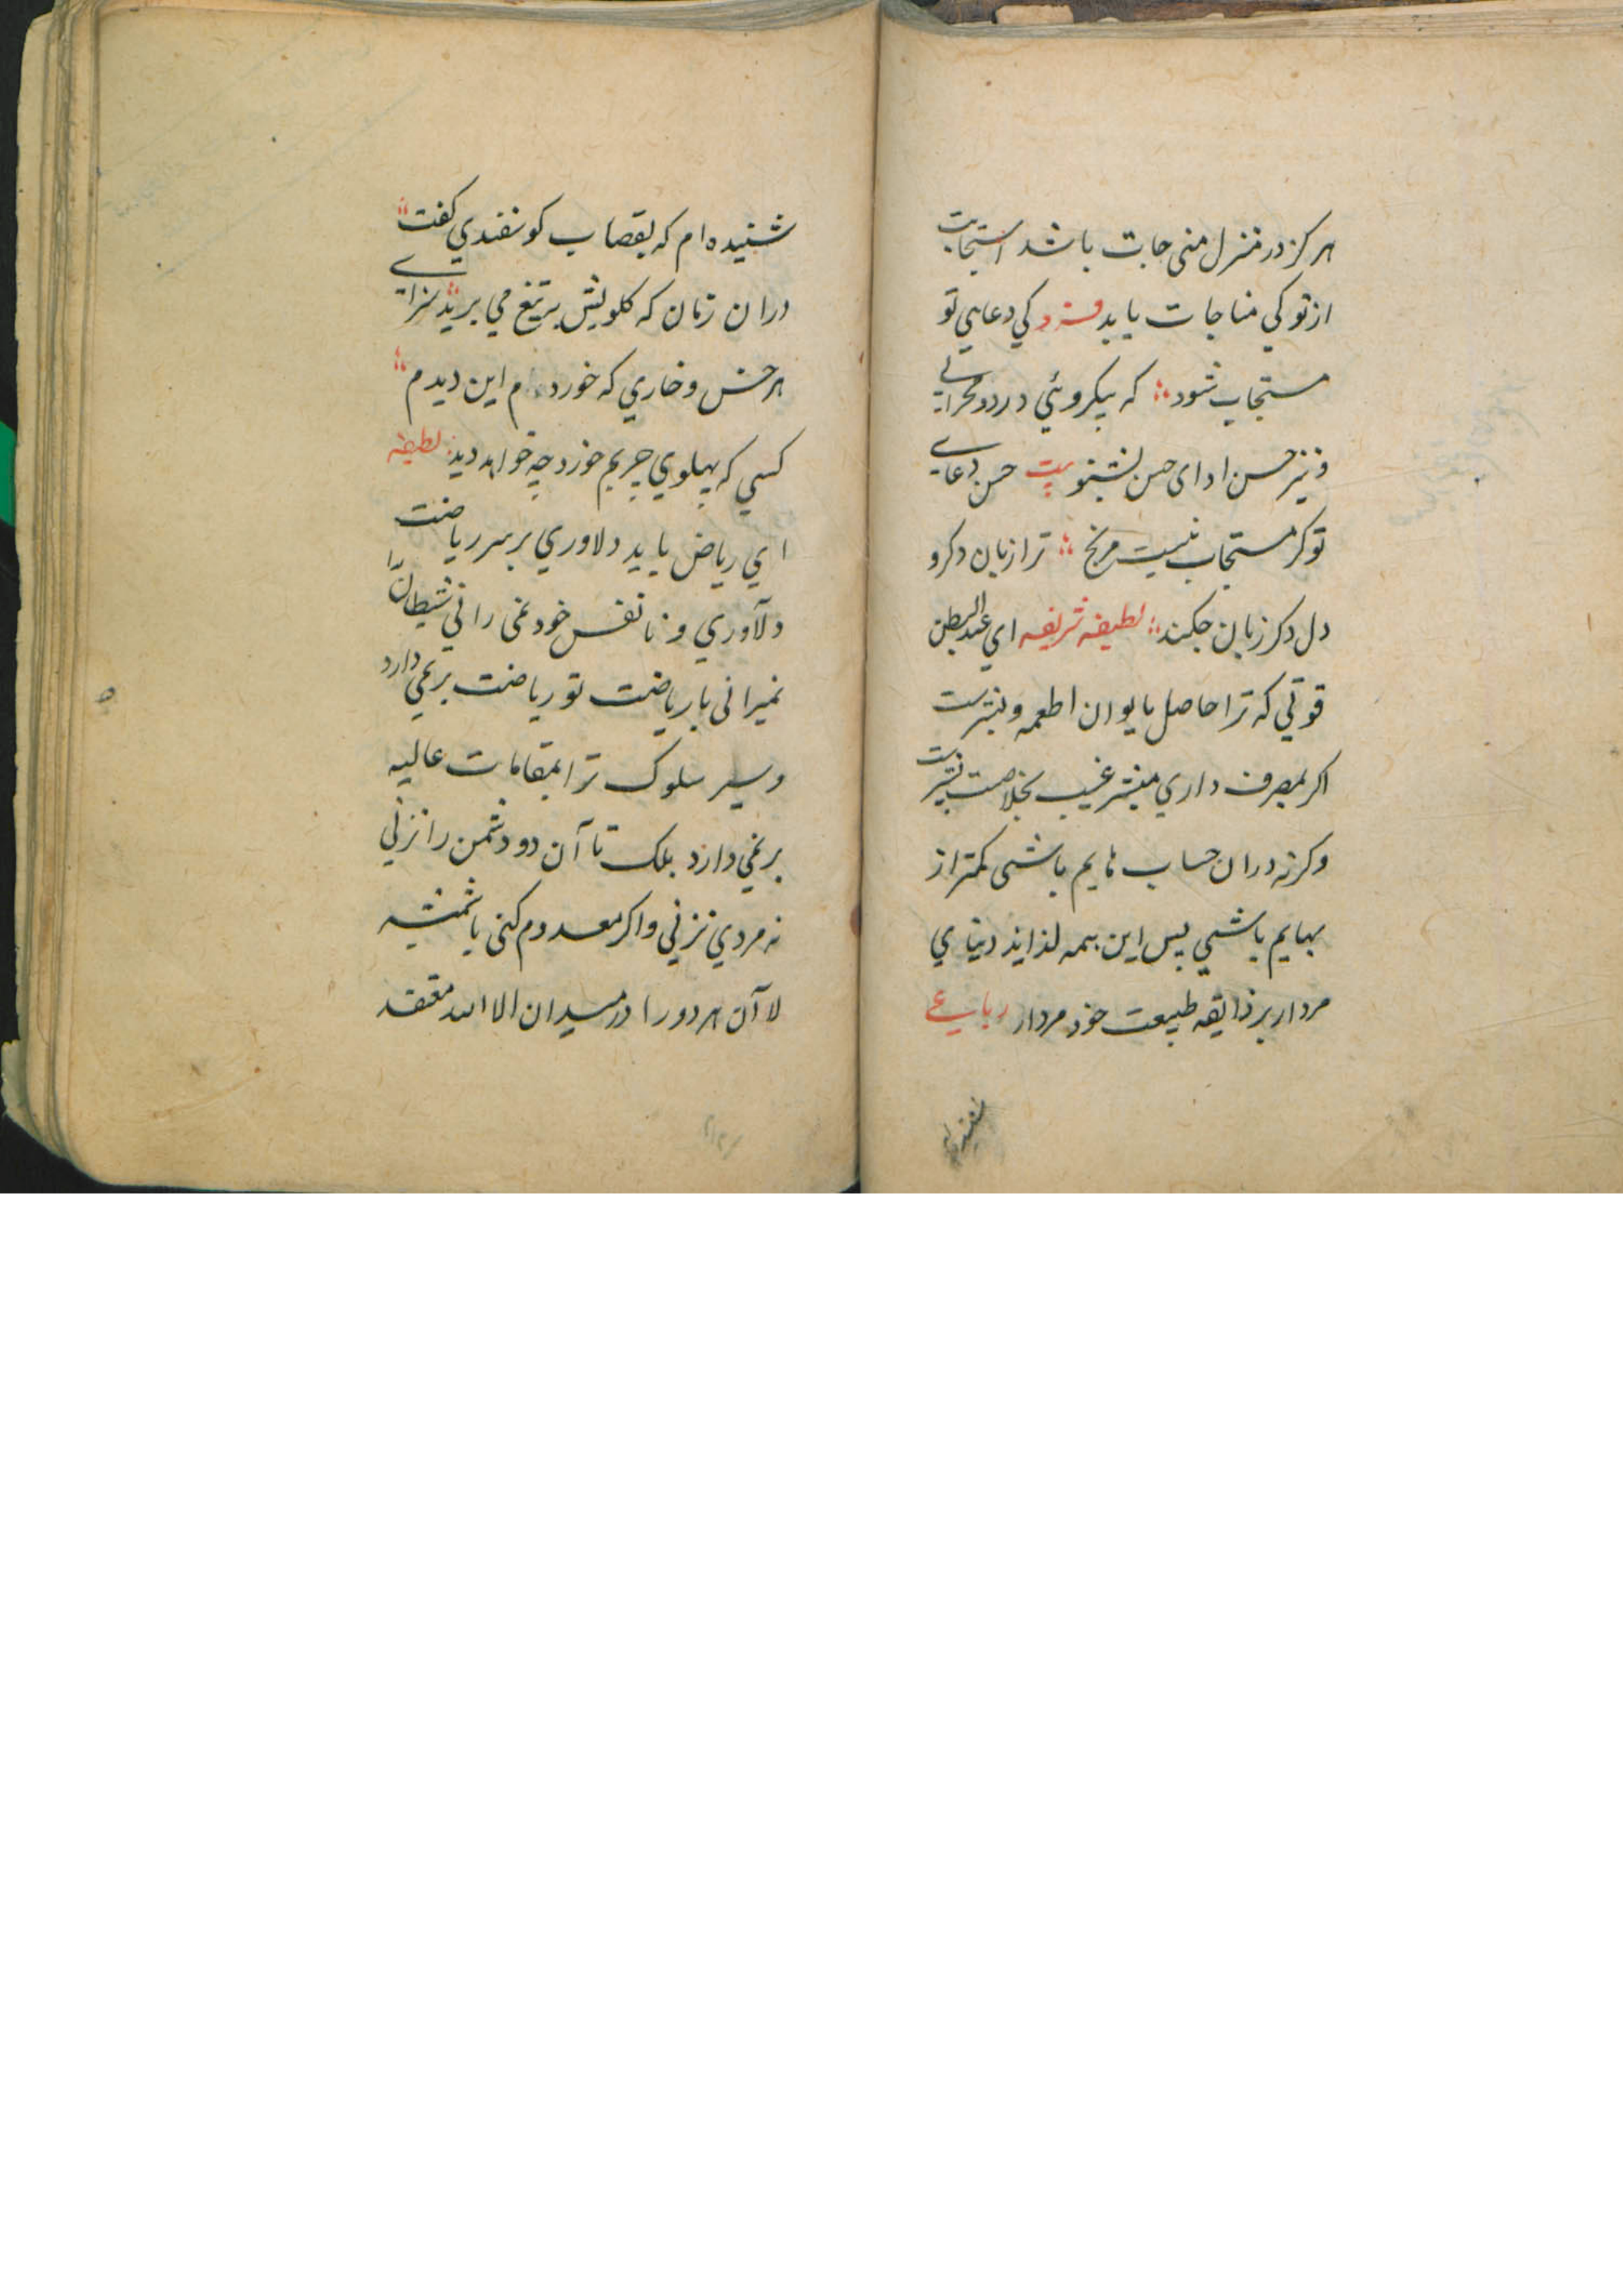 هر کز در منزل منی جات باشد استجابت
از تو کی مناجات باید فرد کی دعای تو
مستجاب شود که بیکروئی در دو محرابی
و نیز حسن ادای حسن بشنو بیت حسن دعای
تو کر مستجاب نیست مرنج ترا زبان دکر و
دل دکر زبان جکند لطیفه شریفه ای عبد البطن
قوتی که ترا حاصل بالوان اطعمه و
اکر بمصرف داری غیب بخلاصت
وکرنه دران حساب هایم باشی کمتر از
بهایم باشی پس این همه لذایذ دنیای
مردار بر ذایقه طبیعت خود مردار رباعی
شنیده ام
شنیده ام که بقصاب کوسفندی کفت
دران زمان که کلویش بتیغ می برید سزای
هر خس و خاری که خورده ام این دیدم
کسی که پهلوی چربم خورد چه خواهد دید لطیفه
ای ریاض باید دلاوری بر سر ریاضت
دلاوری و تا نفس خود نمی رانی شیطان را
نمیرانی بار ریاضت تو ریاضت بر نمی دارد
و سیر سلوک ترا بمقامات عالیه
بر نمی دارد بلک تا آن دو دشمن را نزنی
نه مردی نزنی و اکر معدوم کنی با
لا آن هر دو را در میدان الا الله معتقد